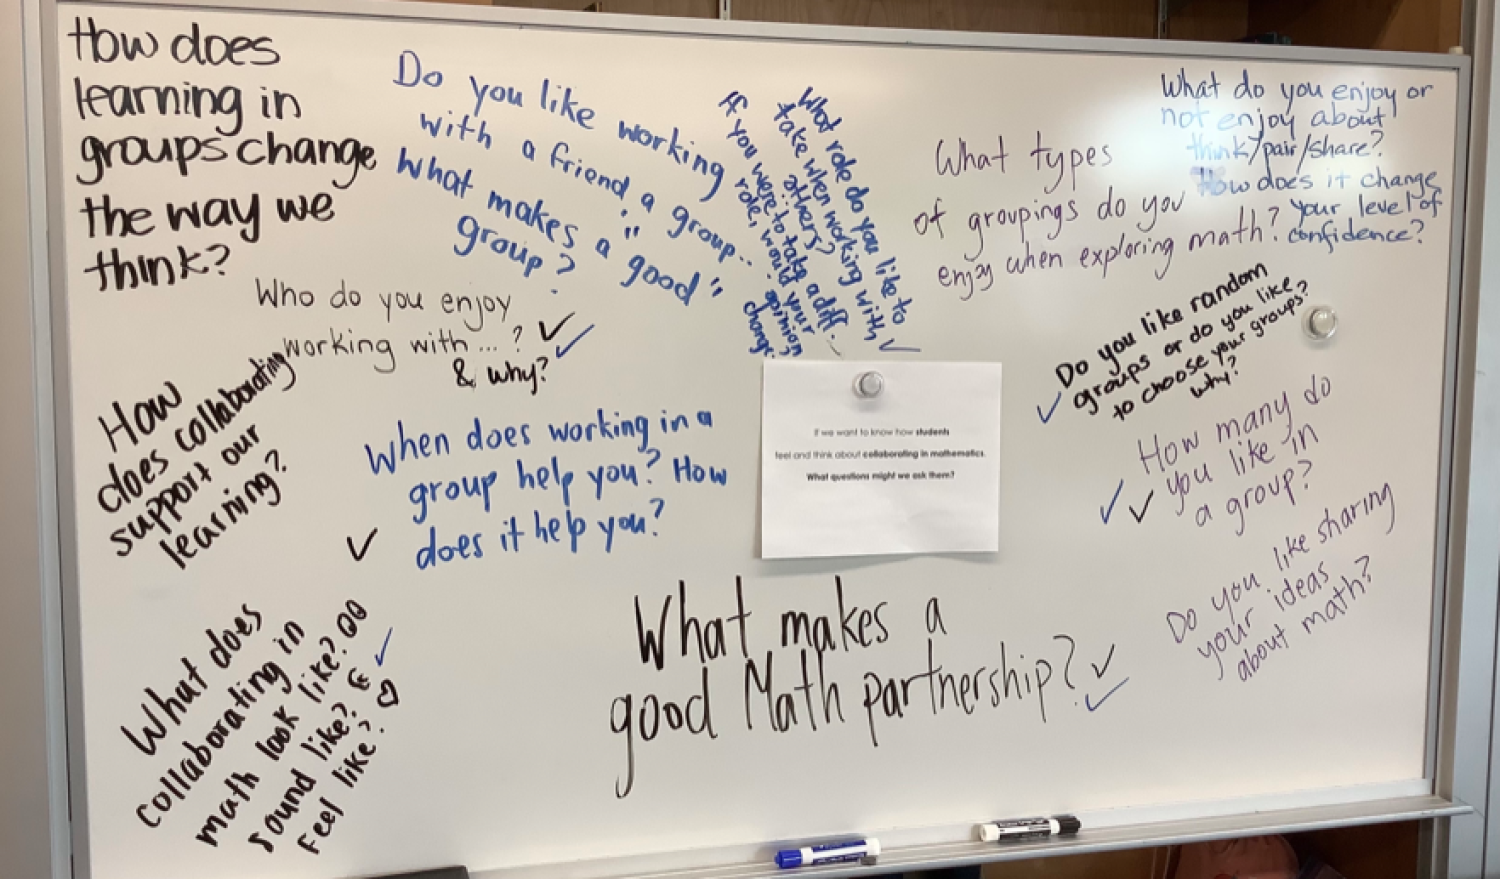 How does
learning in
groups change
the way we
think?
Do you like working
with a friend a group...
What makes a "good"
group?
What role do you like to
take when working with
others?
If you were to take a diff.
role, would your
opinion
change?
What types
of groupings do you
enjoy when exploring math?
What do you enjoy or
not enjoy about
think/pair/share?
How does it change
your level of
confidence?
Who do you enjoy
working with...?
& why?
Do you like random
groups or do you like
to choose your groups?
why?
How
does collaborating
support our
learning?
When does working in a
group help you? How
does it help you?
If we want to know how students
feel and think about collaborating in mathematics.
What questions might we ask them?
How many do
you like in
a group?
Do you like sharing
your ideas
about math?
What does
collaborating in
math look like?
sound like?
feel like?
What makes a
good Math partnership?